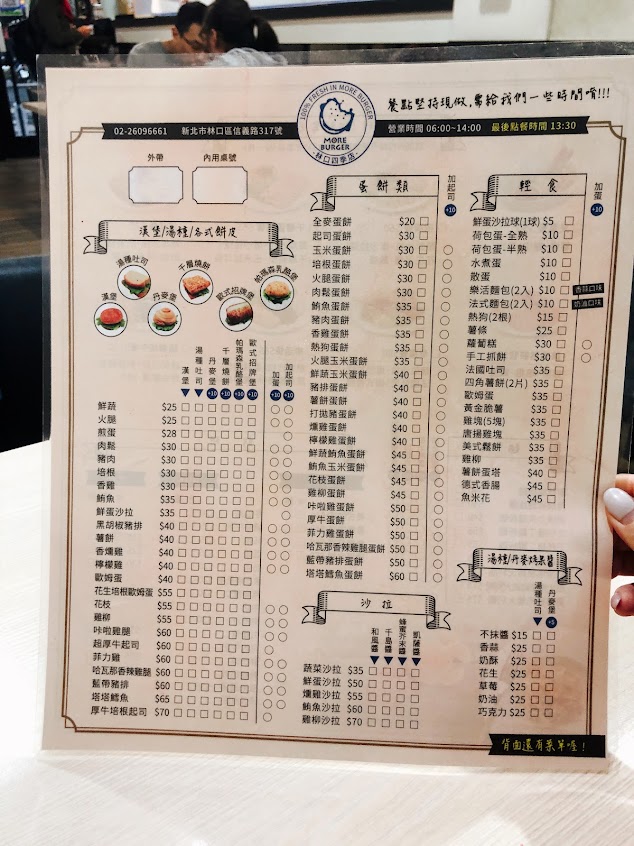 餐點堅持現做,要給我們一些時間唷!!!
100% FRESH IN MORE BURGER
MORE
BURGER
林口四季店
02-26096661 新北市林口區信義路317號
營業時間 06:00~14:00 最後點餐時間 13:30
外帶 內用桌號
漢堡/湯種/各式餅皮
湯種吐司 千層燒餅 帕瑪森乳酪堡
漢堡 丹麥堡 歐式招牌堡
漢堡 湯種吐司 丹麥堡 千層燒餅 帕瑪森乳酪堡 歐式招牌堡 加蛋 加起司
+10 +10 +10 +10 +10 +10
鮮蔬 $25
火腿 $25
煎蛋 $28
肉鬆 $30
豬肉 $30
培根 $30
香雞 $30
鮪魚 $35
鮮蛋沙拉 $35
黑胡椒豬排 $40
薯餅 $40
香燻雞 $40
檸檬雞 $40
歐姆蛋 $40
花生培根歐姆蛋 $55
花枝 $55
雞柳 $55
咔啦雞腿 $60
超厚牛起司 $60
菲力雞 $60
哈瓦那香辣雞腿 $60
藍帶豬排 $60
塔塔鱈魚 $65
厚牛培根起司 $70
蛋餅類
加起司
+10
全麥蛋餅 $20
起司蛋餅 $30
玉米蛋餅 $30
培根蛋餅 $30
火腿蛋餅 $30
肉鬆蛋餅 $30
鮪魚蛋餅 $35
豬肉蛋餅 $35
香雞蛋餅 $35
熱狗蛋餅 $35
火腿玉米蛋餅 $35
鮮蔬玉米蛋餅 $35
豬排蛋餅 $40
薯餅蛋餅 $40
打拋豬蛋餅 $40
燻雞蛋餅 $40
檸檬雞蛋餅 $40
鮮蔬鮪魚蛋餅 $45
鮪魚玉米蛋餅 $45
花枝蛋餅 $45
雞柳蛋餅 $45
咔啦蛋餅 $50
厚牛蛋餅 $50
菲力雞蛋餅 $50
哈瓦那香辣雞腿蛋餅 $50
藍帶豬排蛋餅 $50
塔塔鱈魚蛋餅 $60
沙拉
和風醬 千島醬 蜂蜜芥末醬 凱薩醬
蔬菜沙拉 $35
鮮蛋沙拉 $50
燻雞沙拉 $55
鮪魚沙拉 $60
雞柳沙拉 $70
輕食
加蛋
+10
鮮蛋沙拉球(1球) $5
荷包蛋-全熟 $10
荷包蛋-半熟 $10
水煮蛋 $10
散蛋 $10
樂活麵包(2入) $10 香蒜口味
法式麵包(2入) $10 奶油口味
熱狗(2根) $15
薯條 $25
蘿蔔糕 $30
手工抓餅 $30
法國吐司 $35
四角薯餅(2片) $35
歐姆蛋 $35
黃金脆薯 $35
雞塊(5塊) $35
唐揚雞塊 $35
美式鬆餅 $35
雞柳 $35
薯餅蛋塔 $40
德式香腸 $45
魚米花 $45
湯種/丹麥烤抹醬
湯種吐司 丹麥堡
+5
不抹醬 $15
香蒜 $25
奶酥 $25
花生 $25
草莓 $25
奶油 $25
巧克力 $25
背面還有菜單喔!